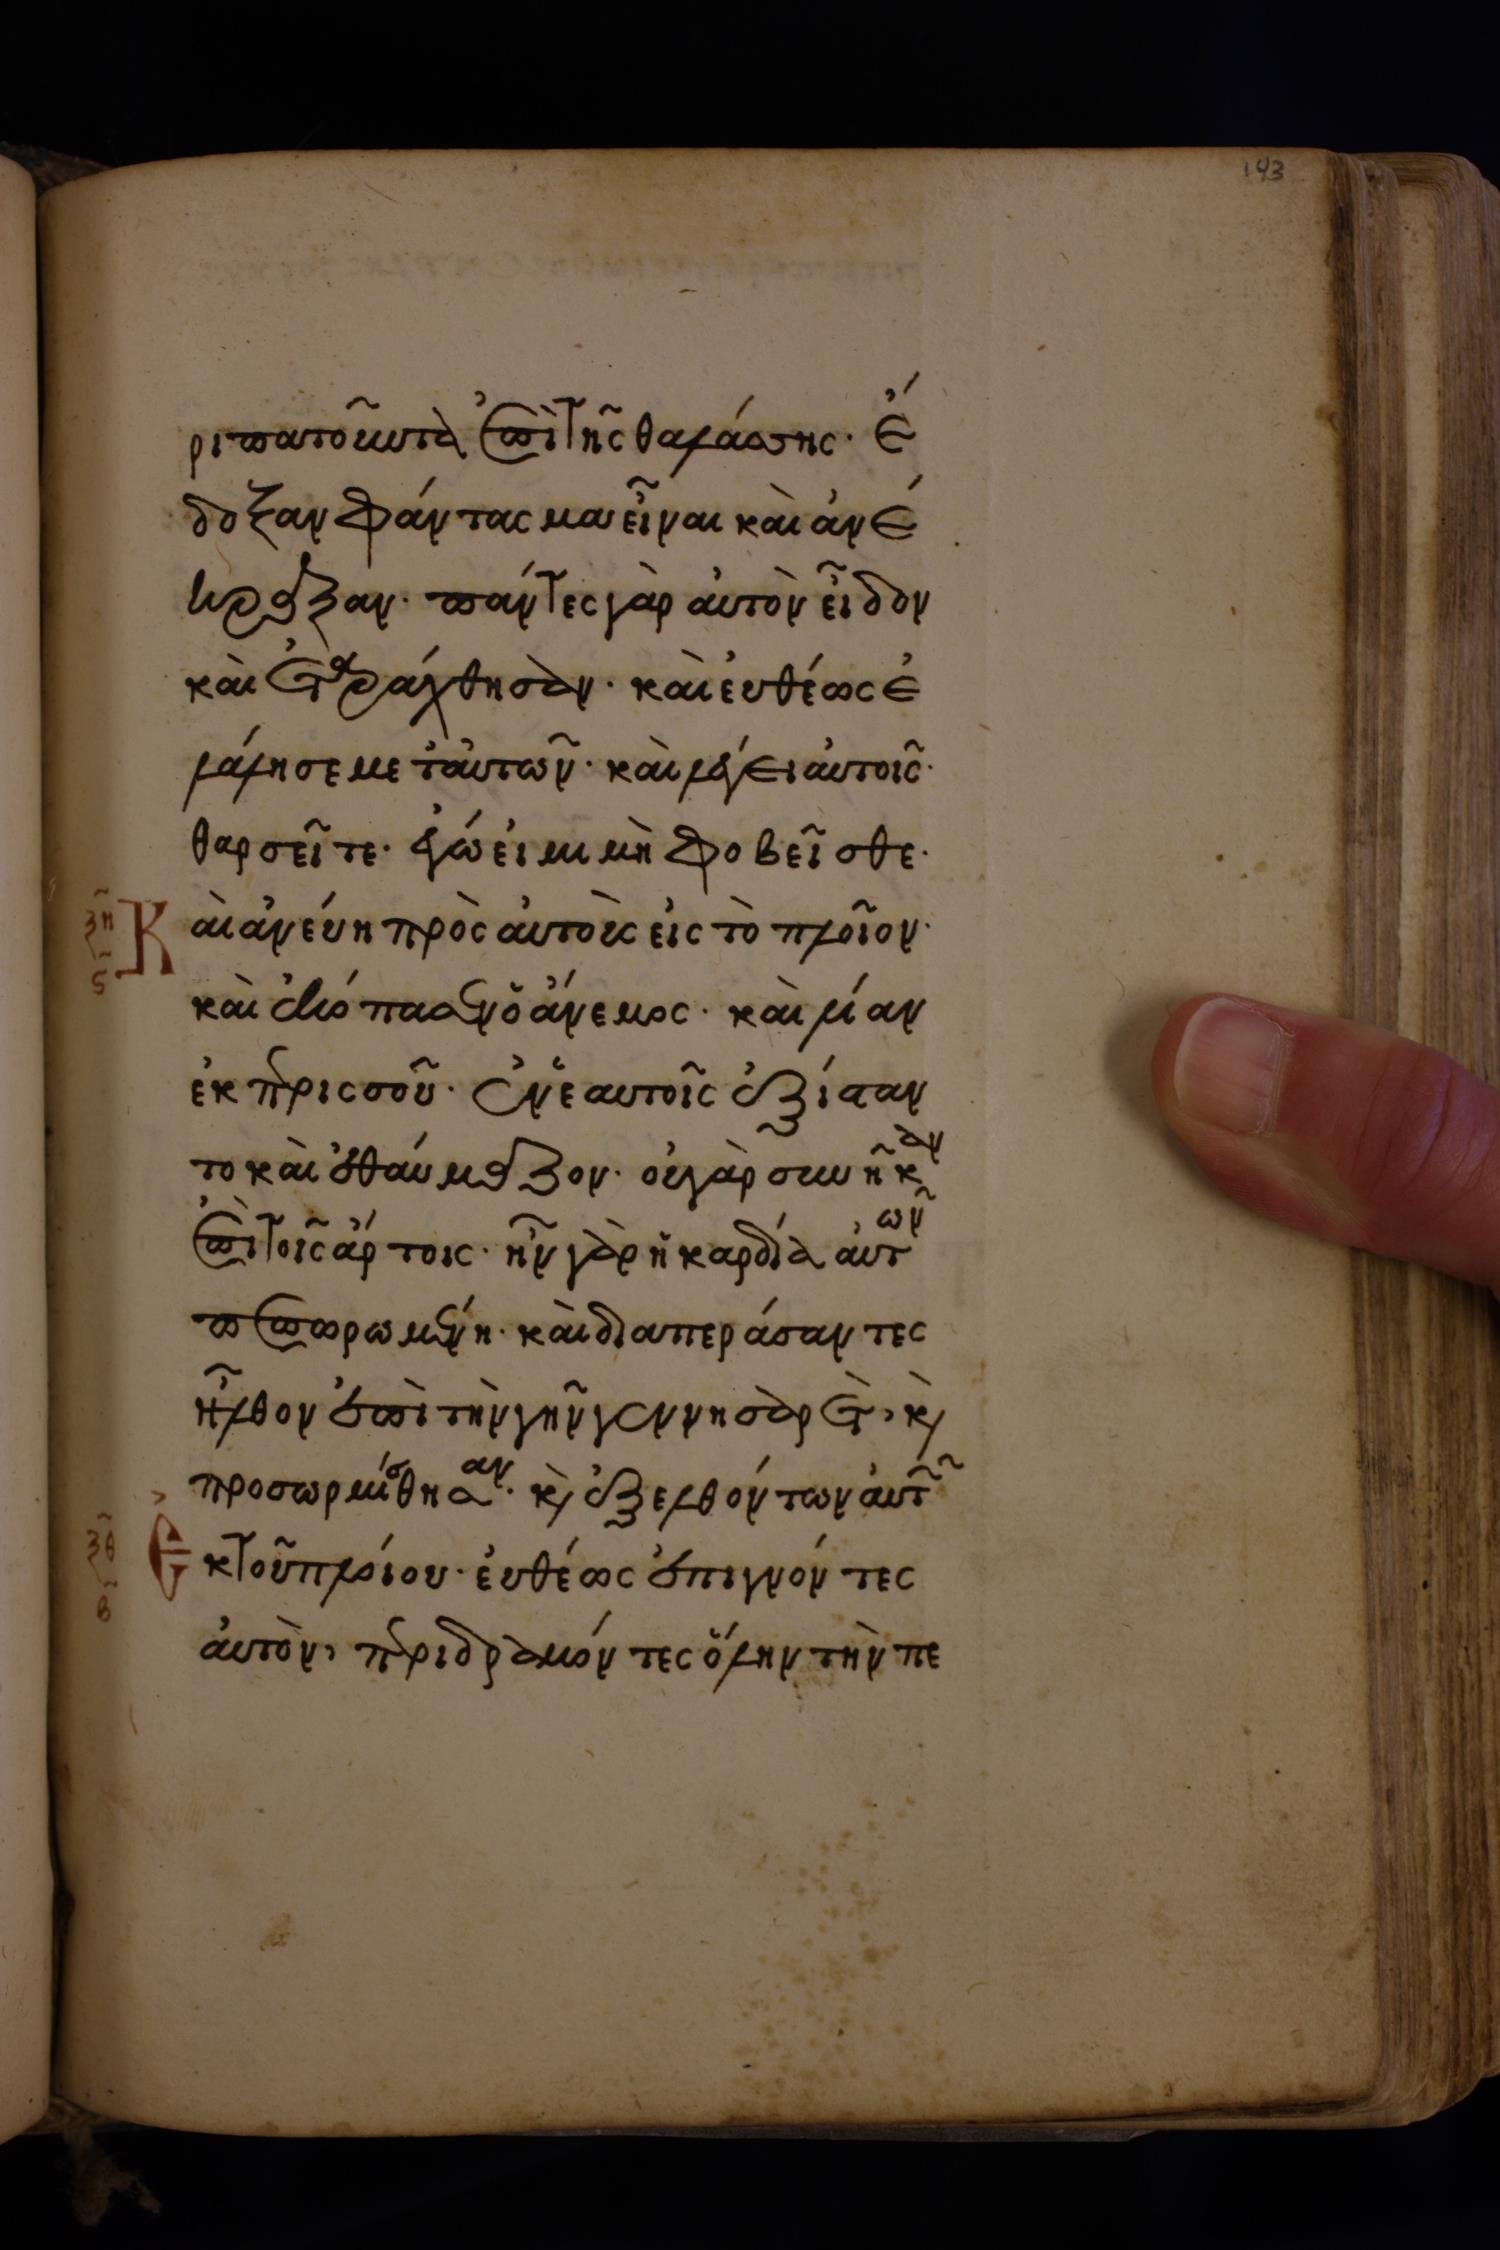 143
ριπατοῦντα ἐπὶ τῆς θαλάσσης· ἔ
δοξαν φάντασμα εἶναι καὶ ἀνέ
κραξαν· πάντες γὰρ αὐτὸν εἶδον
καὶ ἐταράχθησαν· καὶ εὐθέως ἐ
λάλησε μετ' αὐτῶν· καὶ λέγει αὐτοῖς·
θαρσεῖτε· ἐγώ εἰμι μὴ φοβεῖσθε·
ξη ς Καὶ ἀνέβη πρὸς αὐτοὺς εἰς τὸ πλοῖον·
καὶ ἐκόπασεν ὁ ἄνεμος· καὶ λίαν
ἐκ περισσοῦ· ἐν ἑαυτοῖς ἐξίσταν
το καὶ ἐθαύμαζον· οὐ γὰρ συνῆκαν
ἐπὶ τοῖς ἄρτοις· ἦν γὰρ ἡ καρδία αὐτῶν
πεπωρωμένη· καὶ διαπεράσαντες
ἦλθον ἐπὶ τὴν γῆν γεννησαρὲτ, κὶ
προσωρμίσθησαν· κὶ ἐξελθόντων αὐτῶν
ξθ β Ἐκ τοῦ πλοίου· εὐθέως ἐπιγνόντες
αὐτὸν, περιδραμόντες ὅλην τὴν πε